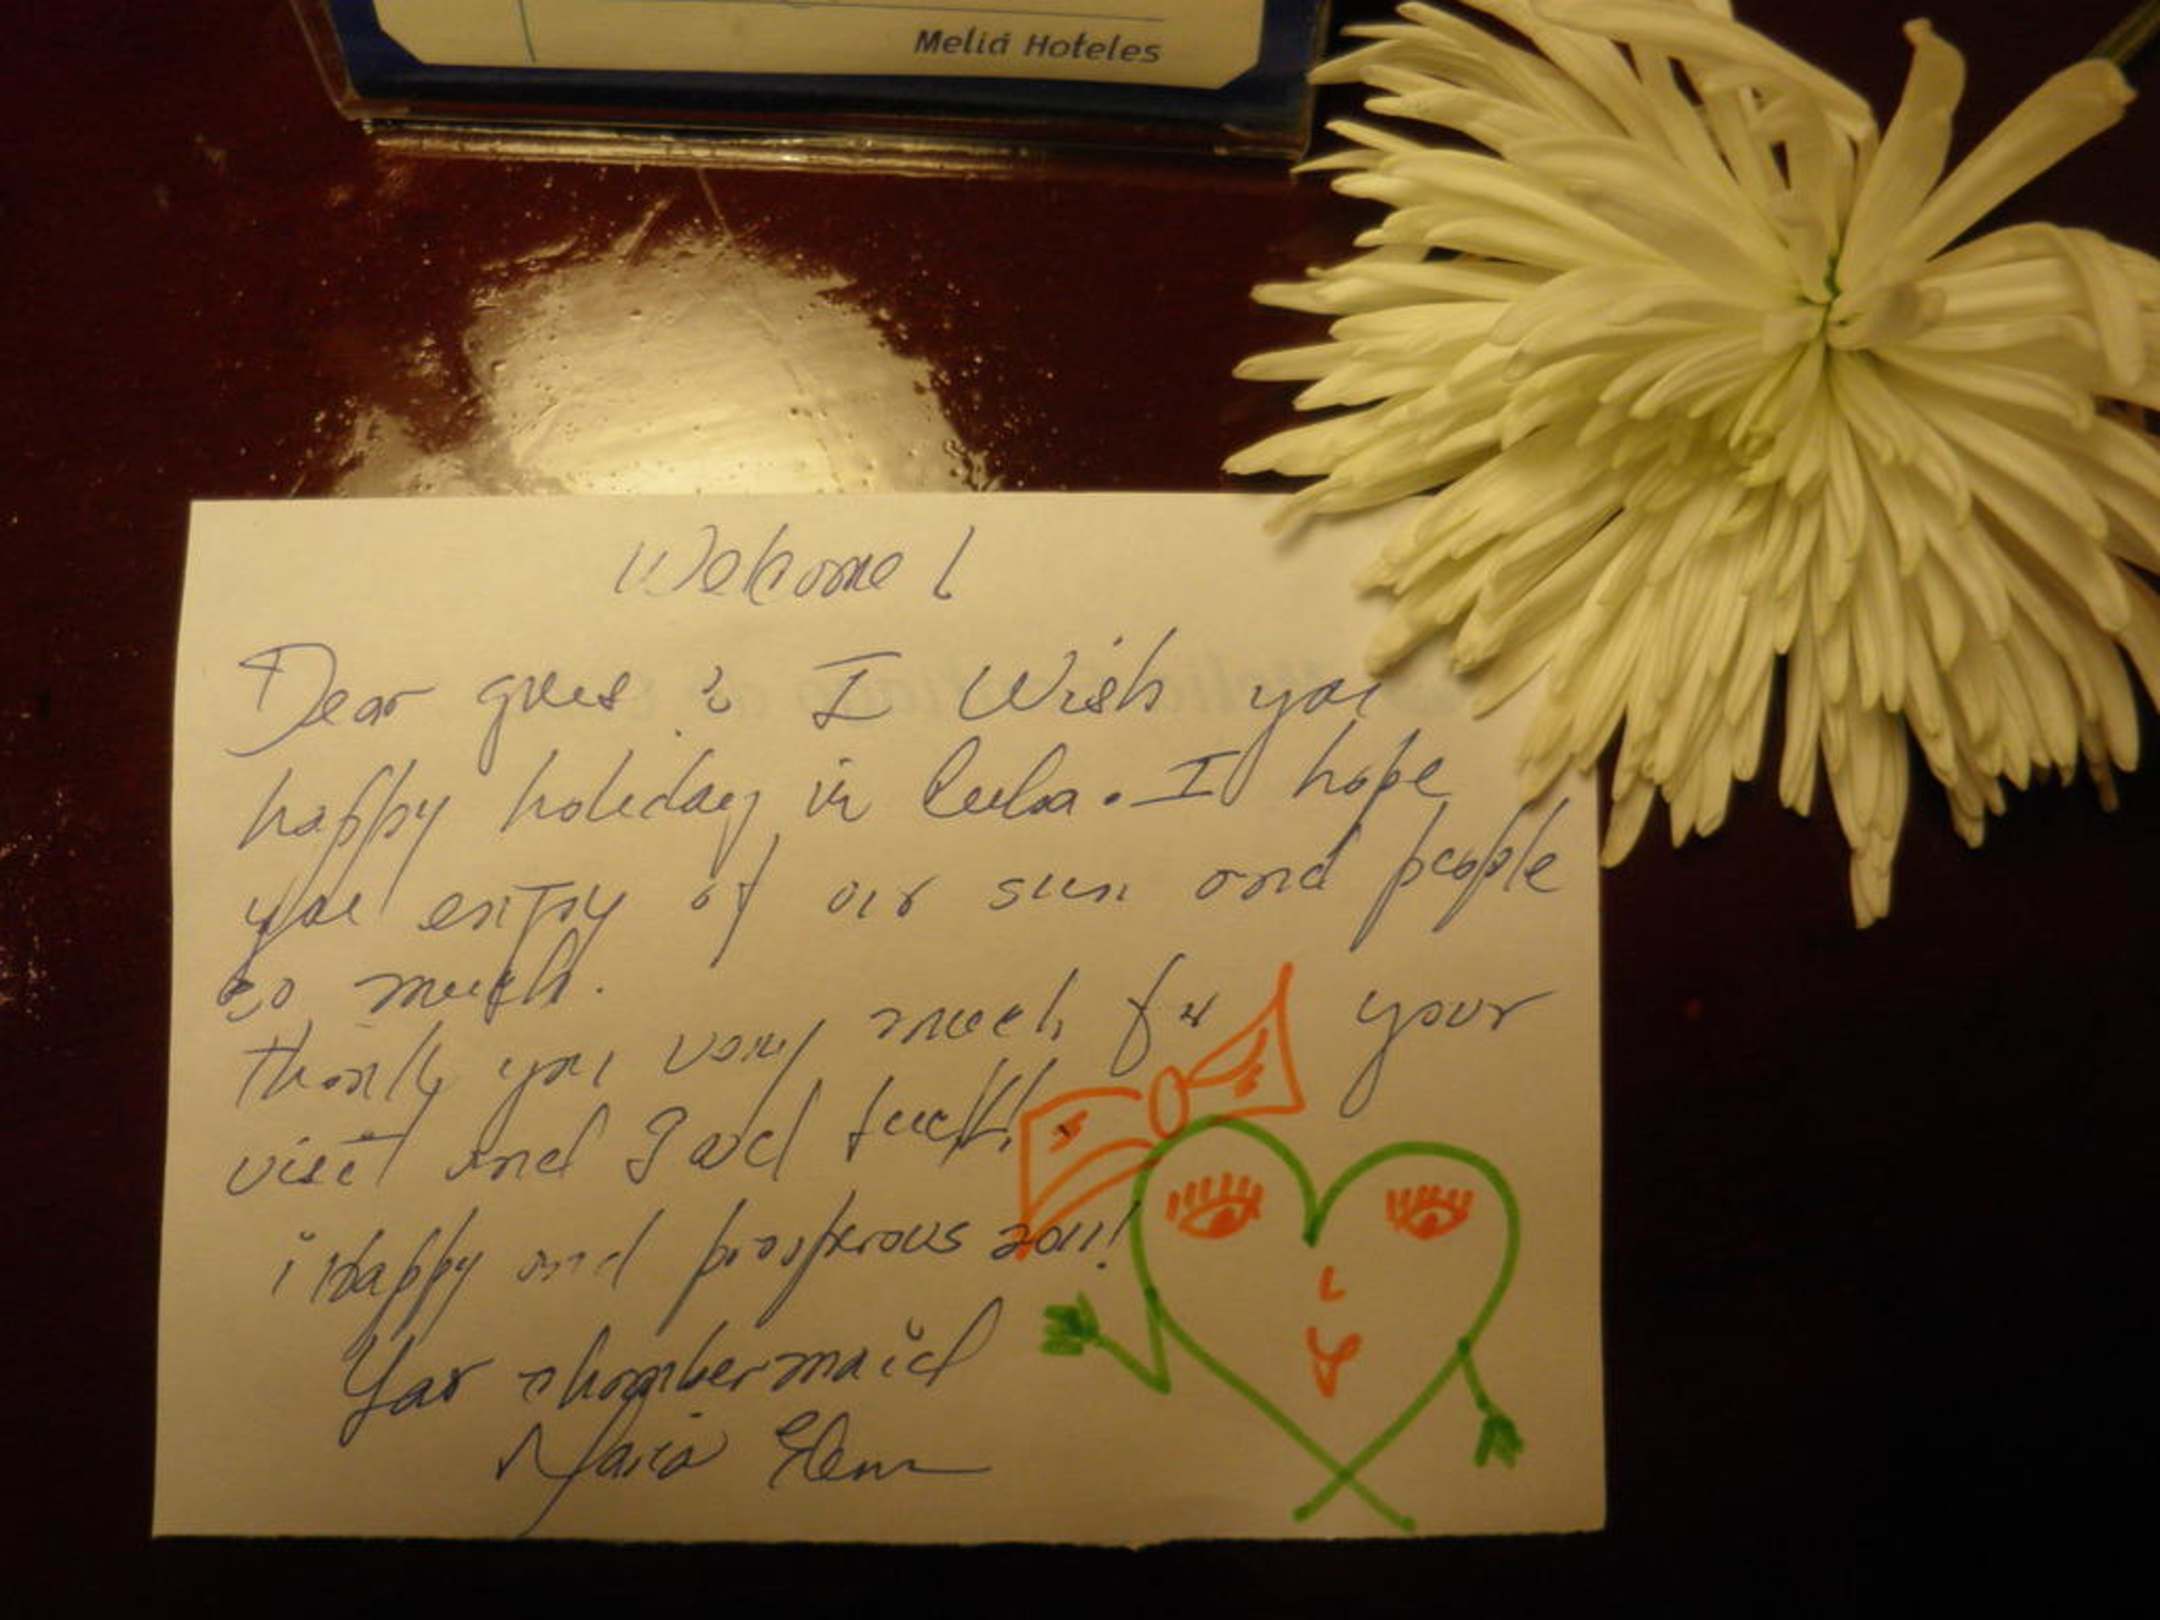 Meliá Hoteles
Welcome!
Dear gues : I Wish you
happy holiday in Cuba. I hope
you enjoy of our sun and people
so much.
thank you very much for your
visit and Good luck!
¡Happy and prosperous 2011!
Your chambermaid
Maria Elena